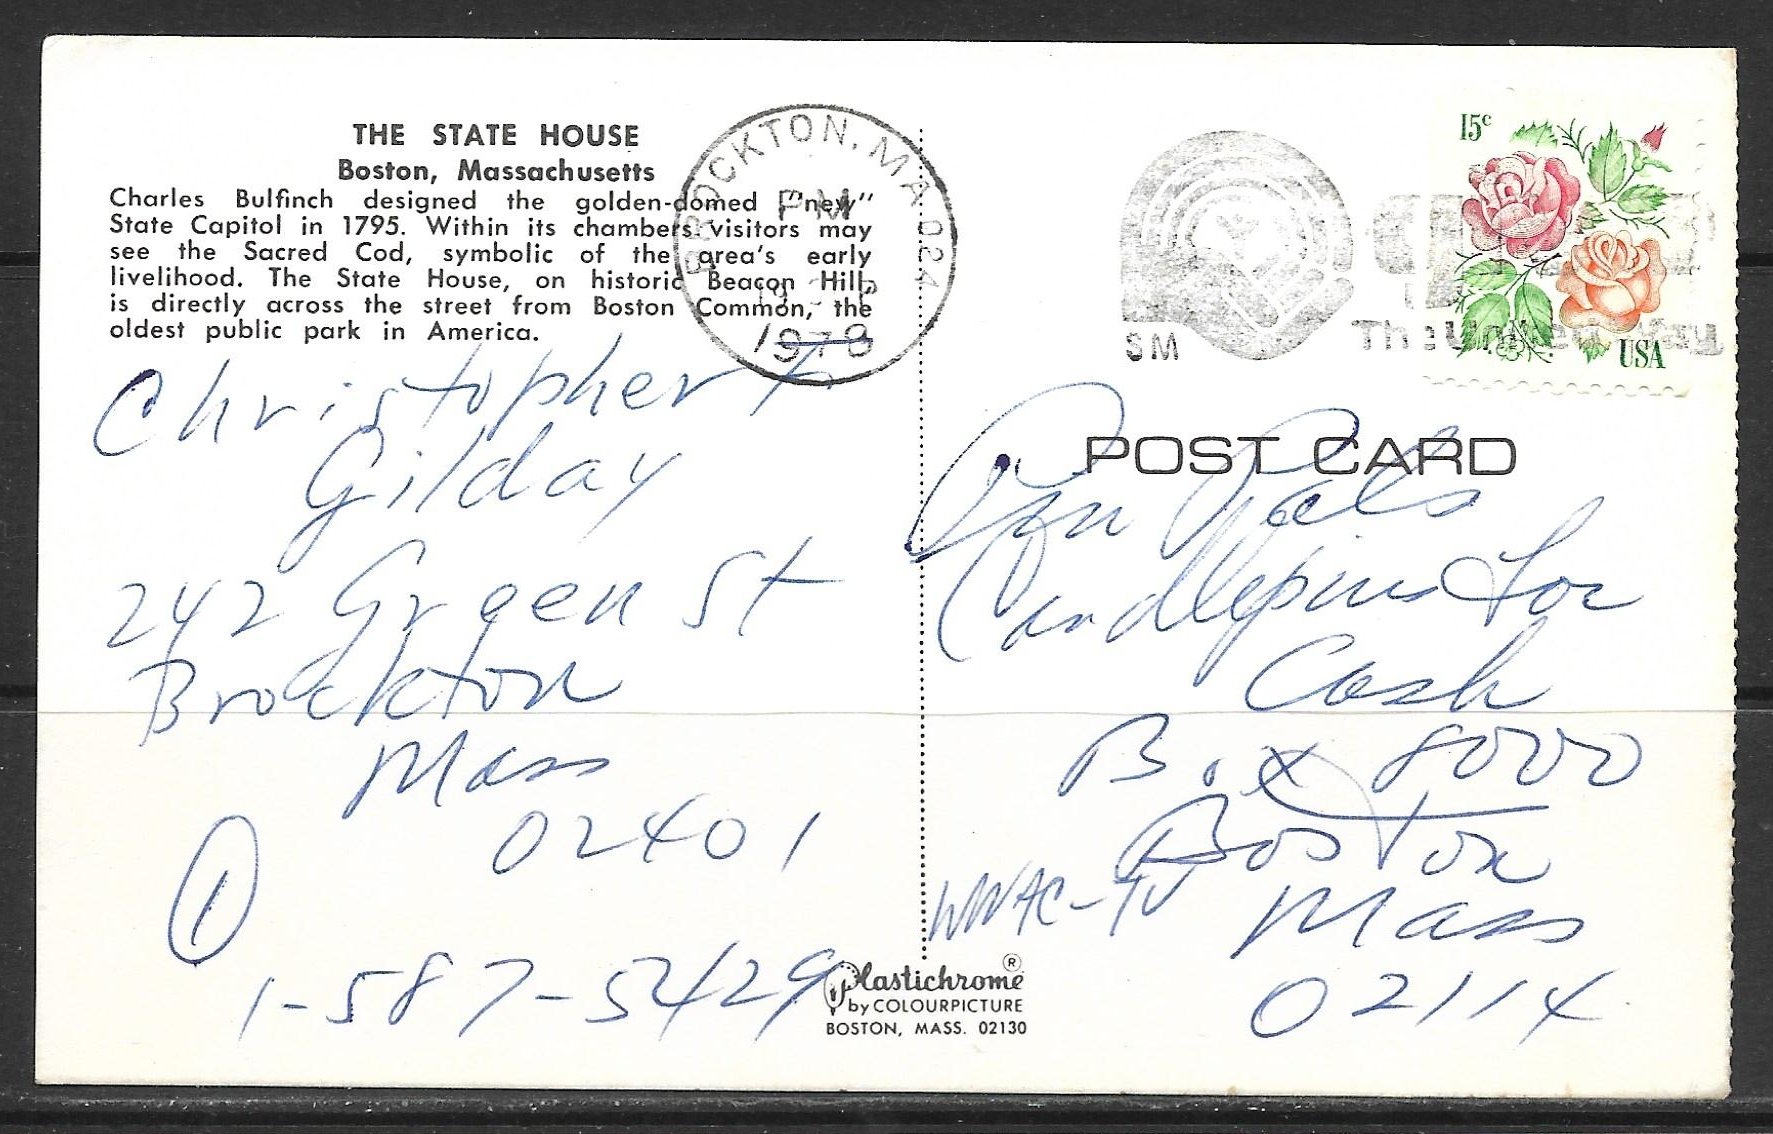 THE STATE HOUSE
Boston, Massachusetts
Charles Bulfinch designed the golden-domed "new"
State Capitol in 1795. Within its chambers visitors may
see the Sacred Cod, symbolic of the area's early
livelihood. The State House, on historic Beacon Hill,
is directly across the street from Boston Common, the
oldest public park in America.
BROCKTON, MA 024
PM
1978
SM
The United Way
15c
USA
POST CARD
Christopher F
Gilday
242 Green St
Brockton
Mass
02401
1
1-587-5429
Pen Pals
Candlepins For
Cash
Box 8000
Boston
WNAC-TV
Mass
02114
Plastichrome ®
by COLOURPICTURE
BOSTON, MASS. 02130